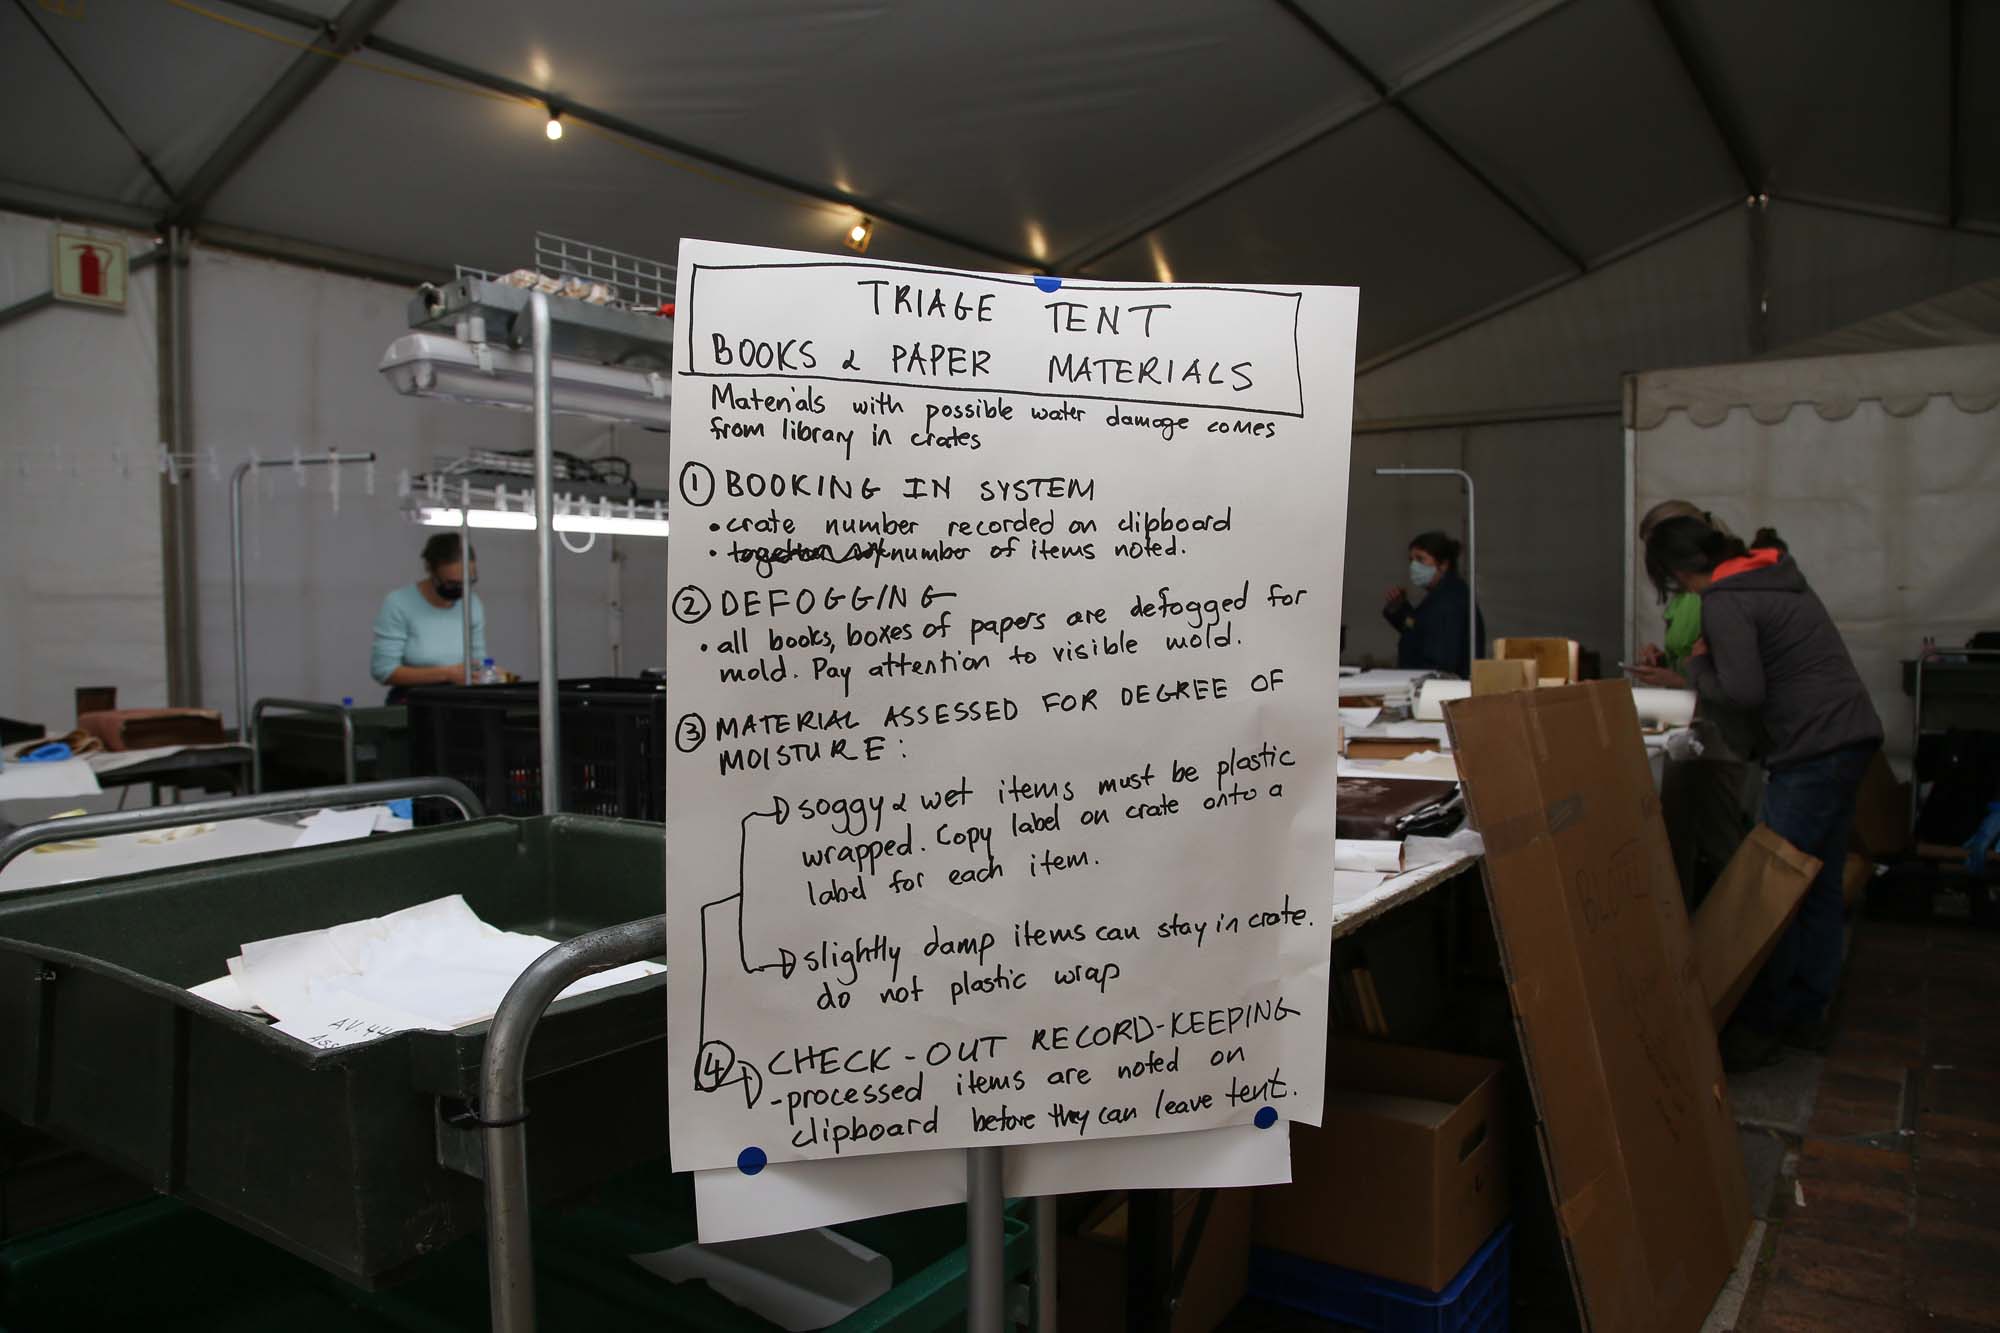 TRIAGE TENT
BOOKS & PAPER MATERIALS
Materials with possible water damage comes
from library in crates
① BOOKING IN SYSTEM
• crate number recorded on clipboard
• number of items noted.
② DEFOGGING
• all books, boxes of papers are defogged for
mold. Pay attention to visible mold.
③ MATERIAL ASSESSED FOR DEGREE OF
MOISTURE:
soggy & wet items must be plastic
wrapped. Copy label on crate onto a
label for each item.
slightly damp items can stay in crate.
do not plastic wrap
④ CHECK-OUT RECORD-KEEPING
- processed items are noted on
clipboard before they can leave tent.
AV. 44